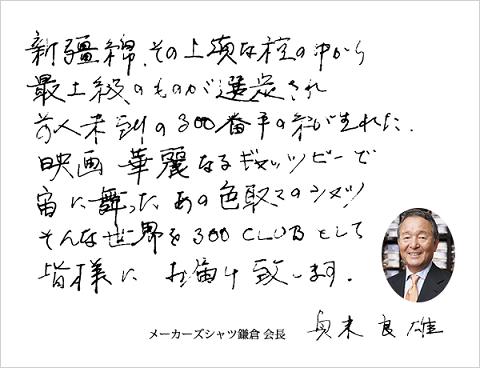 新疆綿、その上質な の中から
最上級のものが選定され
前人未到の300番手の糸が生れた。
映画 華麗なるギャッツビーで
宙に舞ったあの色取々のシャツ
そんな世界を300 CLUBとして
皆様に お届け致します。
メーカーズシャツ鎌倉 会長 貞末良雄